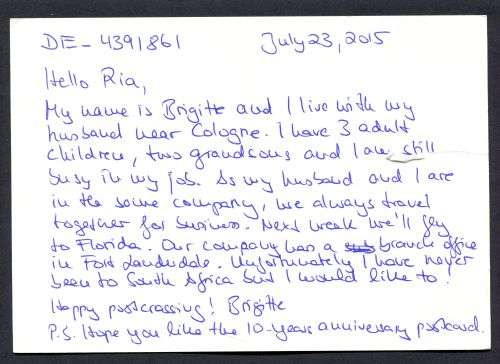 DE-4391861 July 23, 2015
Hello Ria,
My name is Brigitte and I live with my
husband near Cologne. I have 3 adult
children, two grandsons and I am still
busy in my job. As my husband and I are
in the same company, we always travel
together for business. Next week we'll fly
to Florida. Our company has a branch office
in Fort Lauderdale. Unfortunately I have never
been to South Africa but I would like to!
Happy postcrossing! Brigitte
P.S. Hope you like the 10-years anniversary postcard.